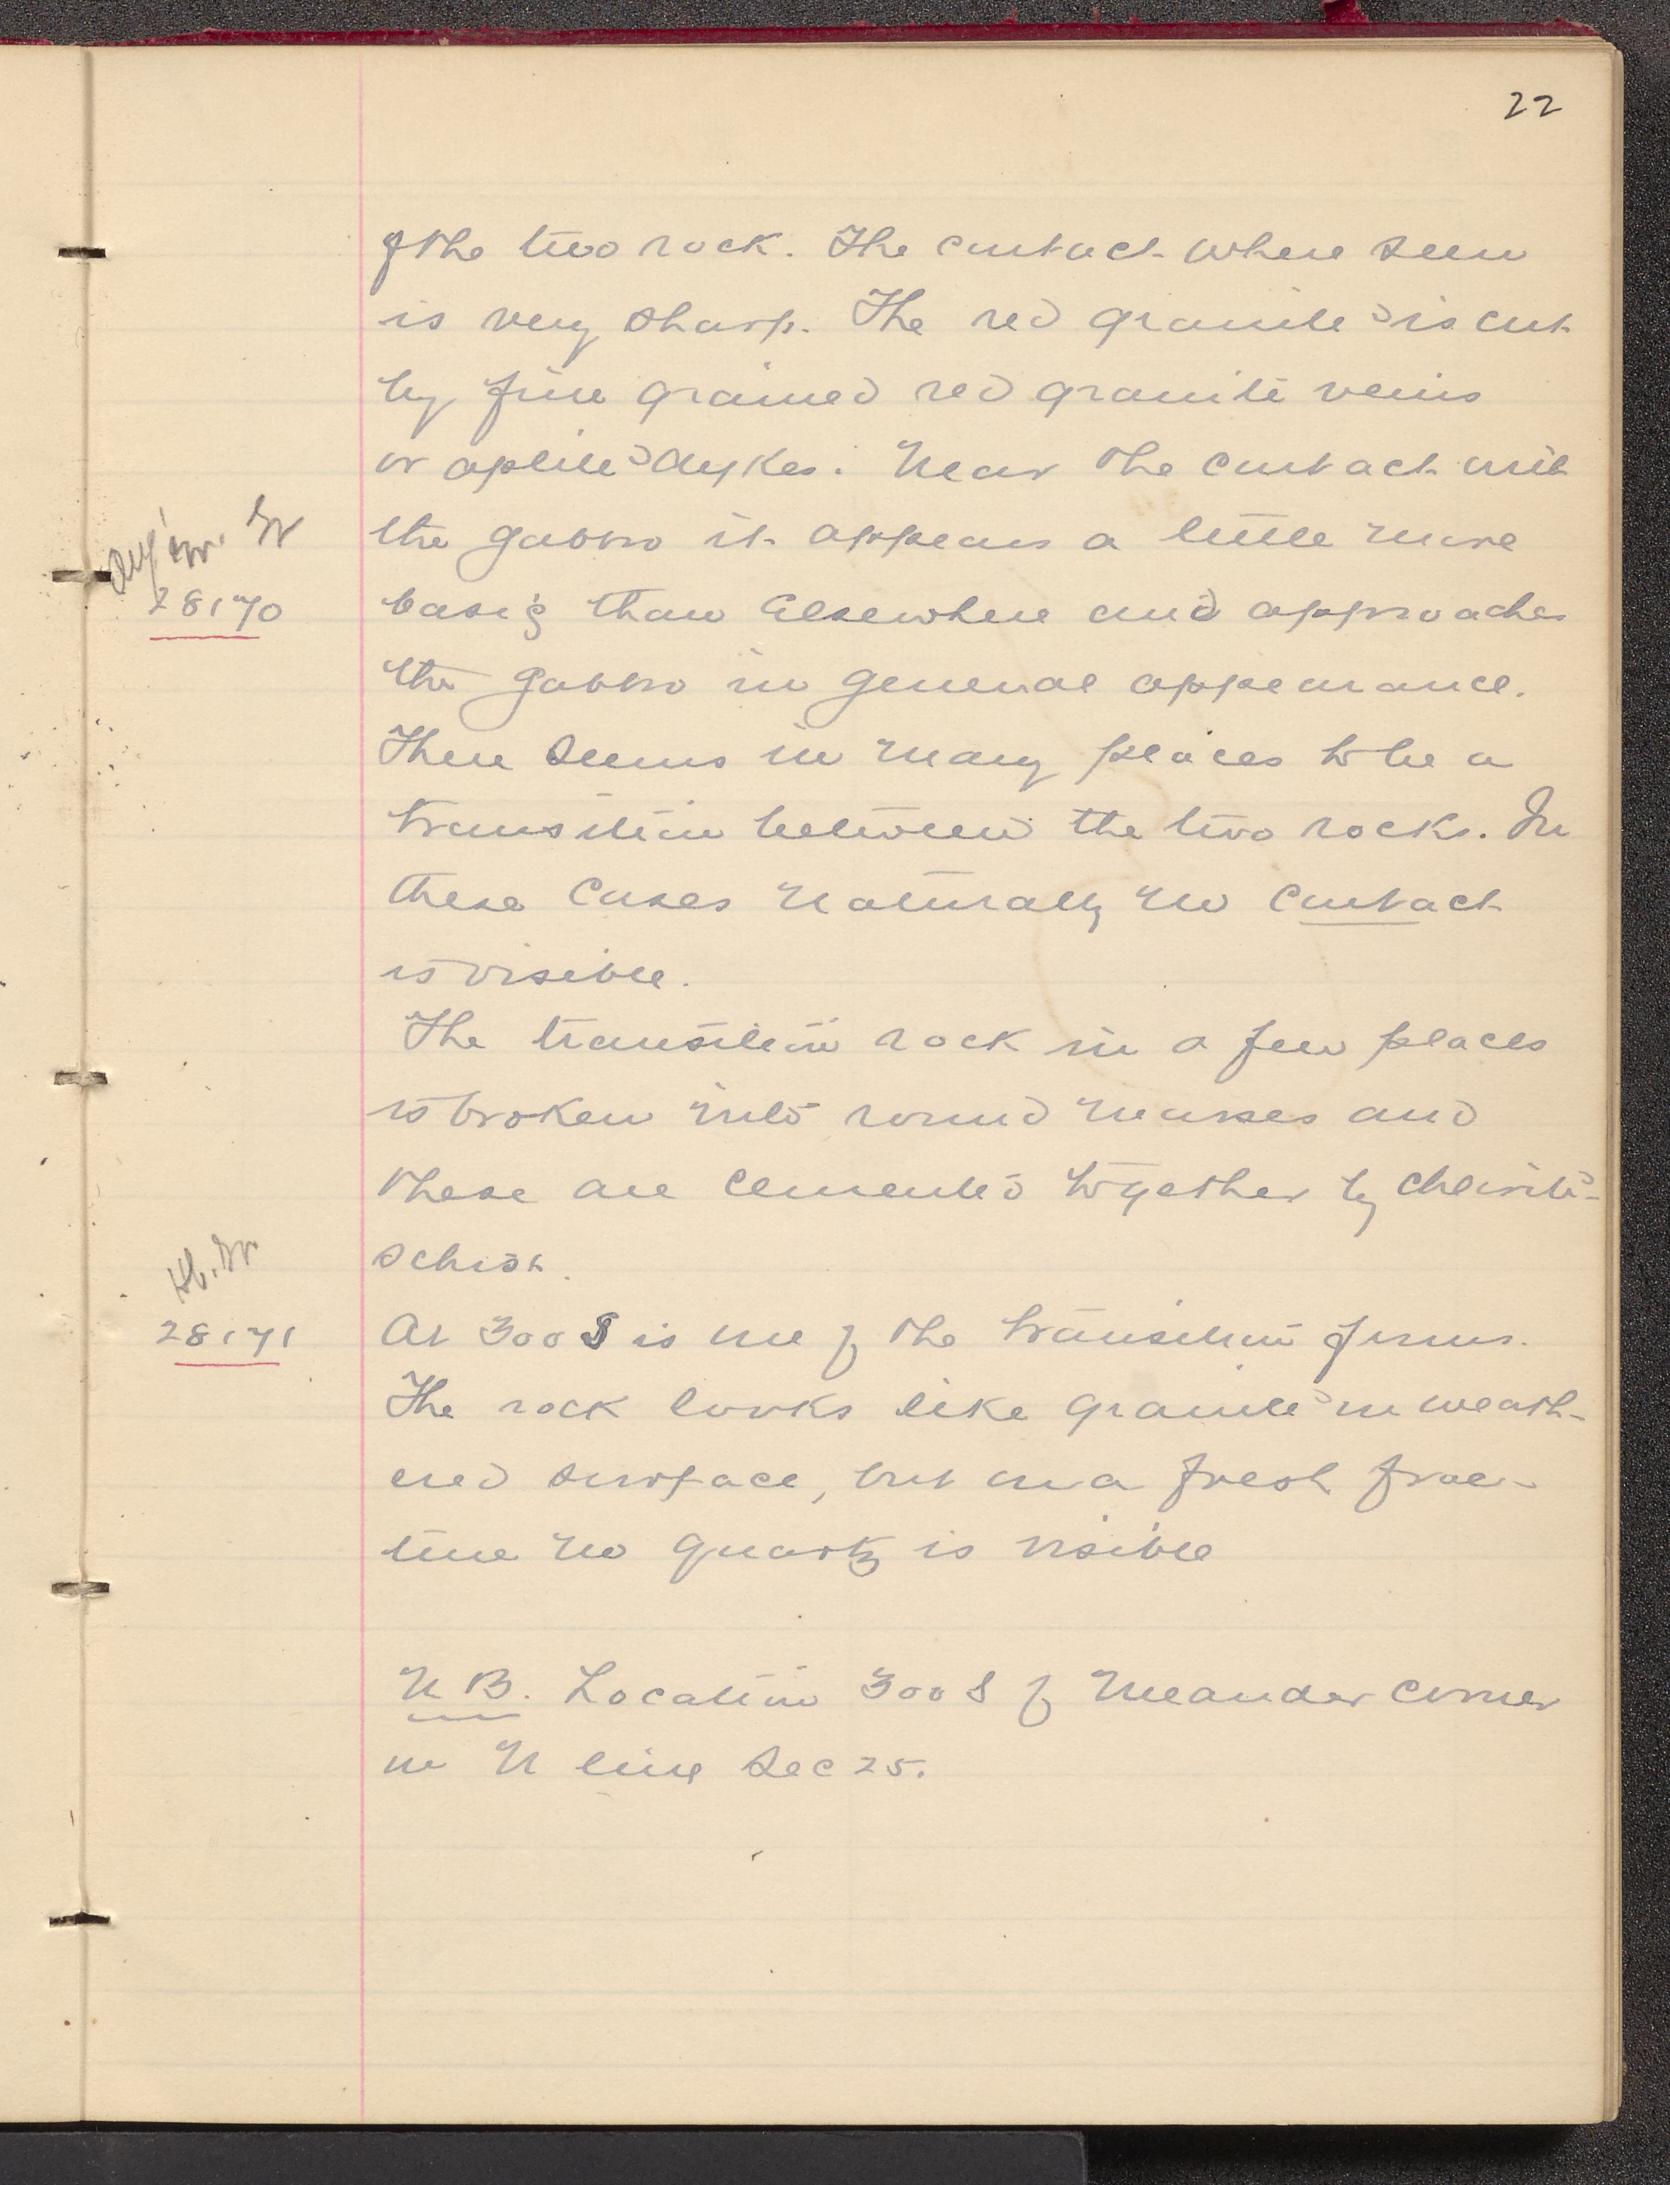 22
of the two rock. The contact where seen
is very sharp. The red granite is cut
by fine grained red granite veins
or aplite dykes. Near the contact with
the gabbro it appears a little more
Gr
28170
basic than elsewhere and approaches
the gabbro in general appearance.
There seems in many places to be a
transition between the two rocks. In
these cases naturally no contact
is visible.
The transition rock in a few places
is broken into round masses and
these are cemented together by chlorite-
schist.
Hb. Gr
28171
At 300 S is one of the transition forms.
The rock looks like granite on weath-
ered surface, but on a fresh frac-
ture no quartz is visible
N B. Location 300 S of Meander corner
on N line Sec 25.